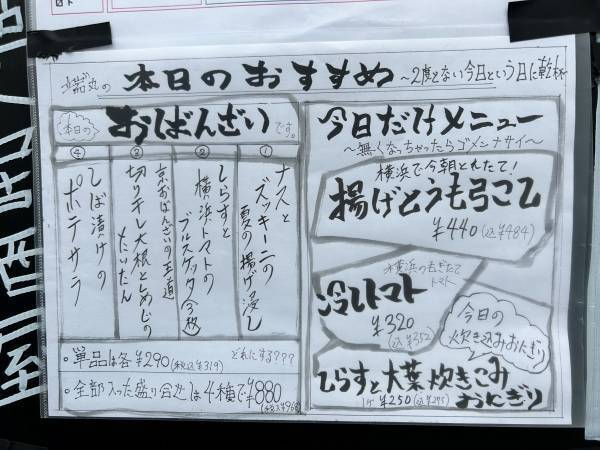 本日のおすすめ ~2度とない今日という日に乾杯~
本日の おばんざい です。
①
ナスと
ズッキーニの
夏の揚げ浸し
②
しらすと
横浜トマトの
ブルスケッタ(3枚)
③
京おばんざいの王道
切り干し大根としめじの
たいたん
④
しば漬けの
ポテサラ
・単品は各¥290(税込¥319) どれにする???
・全部入った盛り合せは4種で¥880
(税込¥968)
今日だけメニュー
~無くなっちゃったらゴメンナサイ~
横浜で今朝とれたて!
揚げとうもろこし
¥440(込¥484)
トマト
冷しトマト
¥320
(込¥352)
今日の
炊き込みおにぎり
しらすと大葉炊きこみ
おにぎり
1ケ¥250(込¥275)